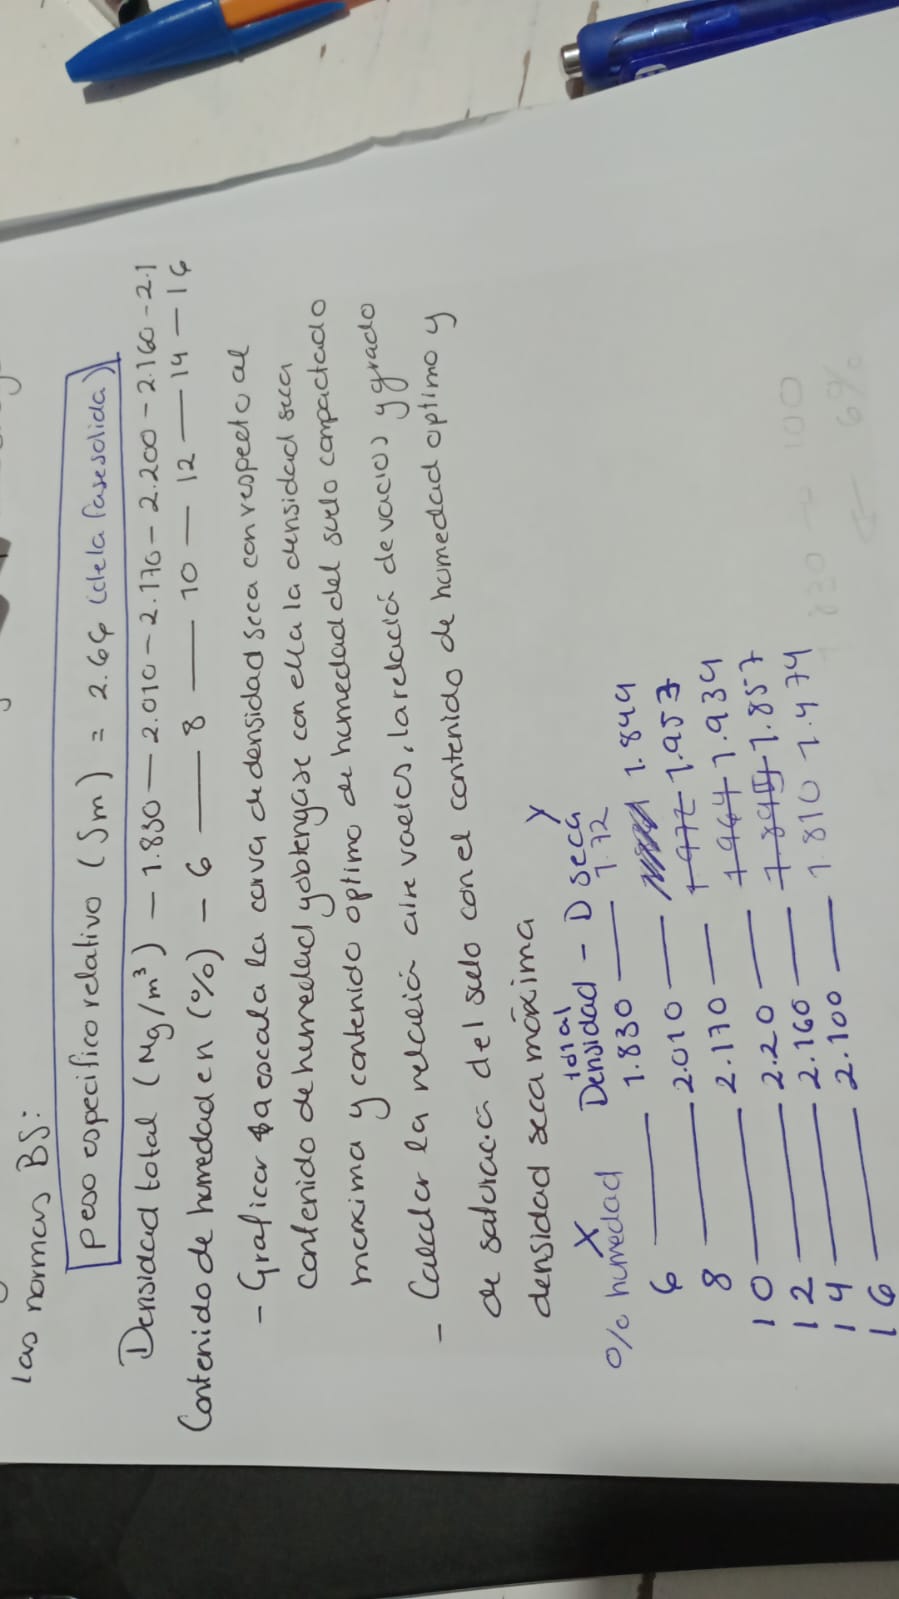 las normas BS:
peso especifico relativo (Sm) = 2.64 (de la fase solida)
Densidad total (Mg/m³) - 1.830 - 2.010 - 2.170 - 2.200 - 2.160 - 2.1
Contenido de humedad en (%) - 6 - 8 - 10 - 12 - 14 - 16
- Graficar a escala la curva de densidad seca con respecto al
contenido de humedad y obtengase con ella la densidad seca
maxima y contenido optimo de humedad del suelo compactado
- Calcular la relación aire vacios, la relación de vacios y grado
de saturación del suelo con el contenido de humedad optimo y
densidad seca máxima
X total Y
% humedad Densidad - D seca
6 — 1.830 — 1.72
8 — 2.010 — 1.844
10 — 2.170 — 1972 1.953
12 — 2.20 — 1964 1.934
14 — 2.160 — 1.857
16 — 2.100 — 1.810 1.474
1830 100
6%